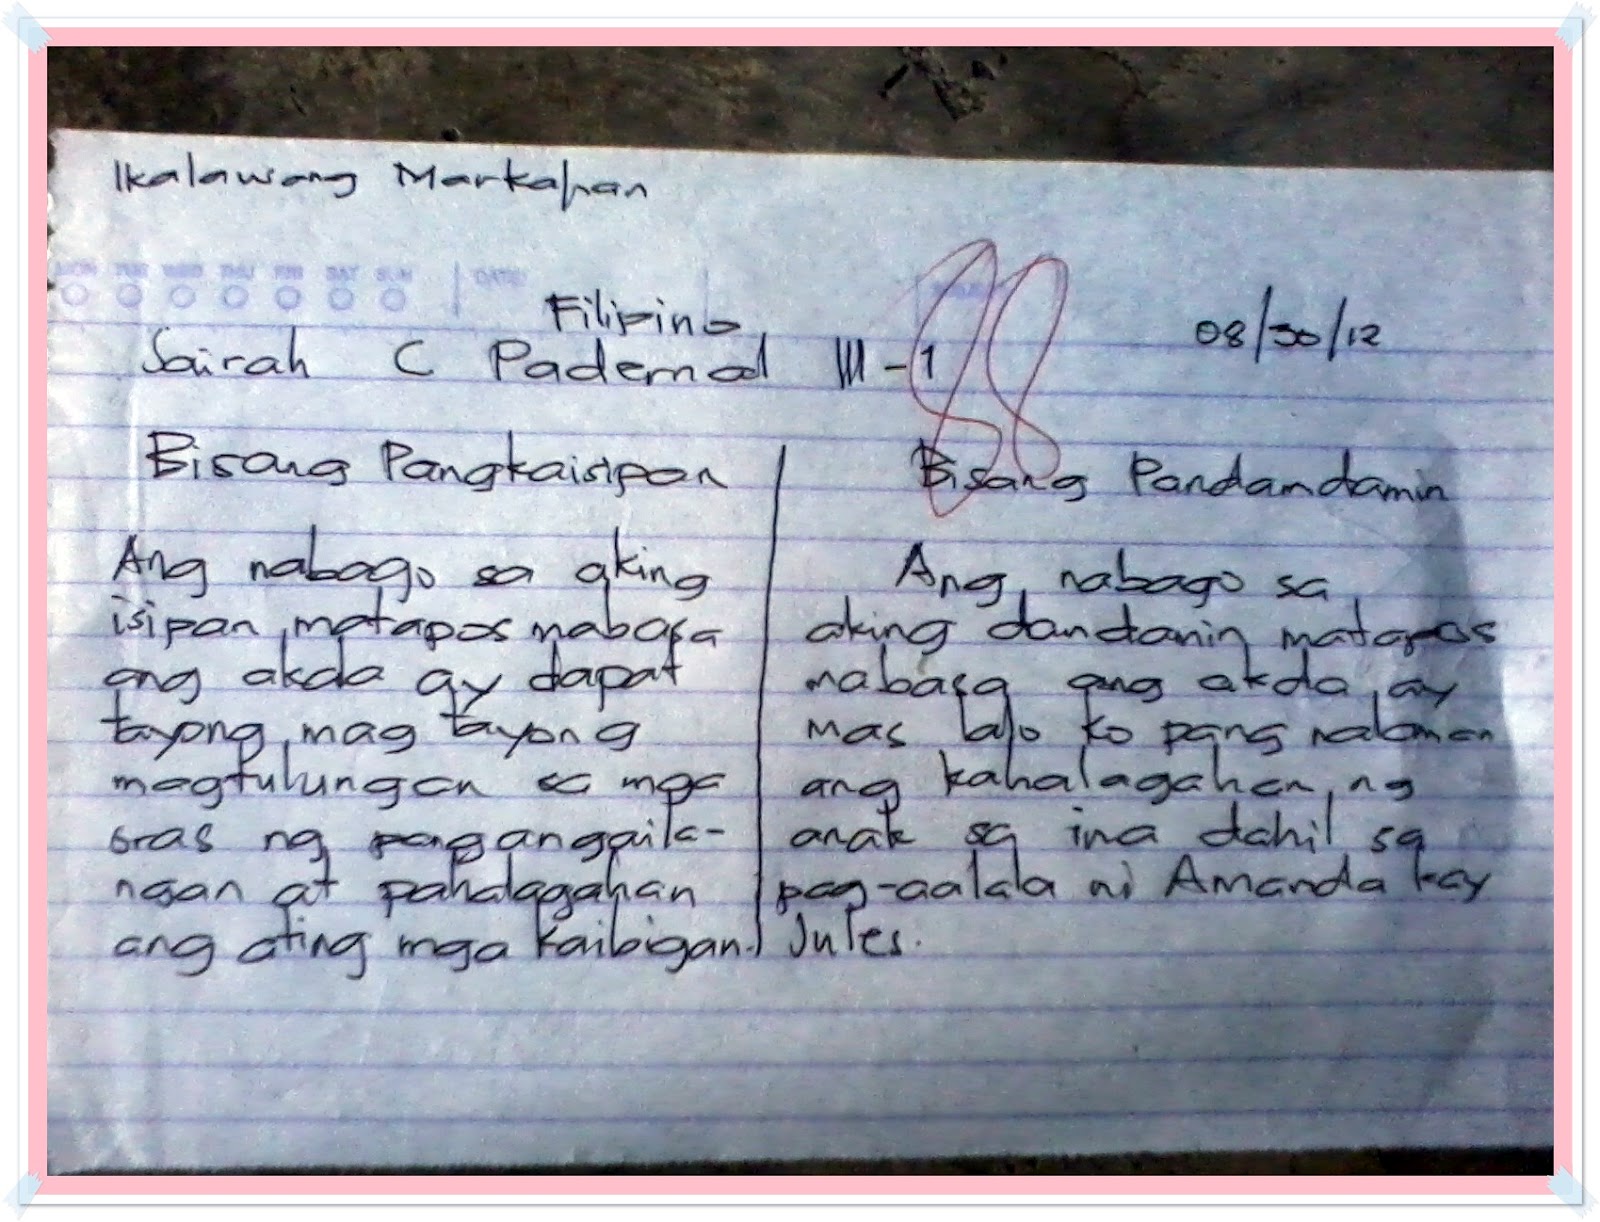 Ikalawang Markahan
MON TUE WED THU FRI SAT SUN DATE:
Filipino
Sairah C Padernal III-1 08/30/12
88
Bisang Pangkaisipan
Ang nabago sa aking
isipan matapos mabasa
ang akda ay dapat
tayong mag tayong
magtulungan sa mga
oras ng pangangaila-
ngan at pahalagahan
ang ating mga kaibigan.
Bisang Pandamdamin
Ang nabago sa
aking damdamin matapos
mabasa ang akda ay
mas lalo ko pang nalaman
ang kahalagahan ng
anak sa ina dahil sa
pag-aalala ni Amanda kay
Jules.